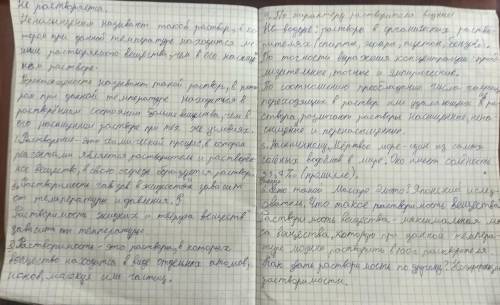 не растворяется.
Ненасыщенным называют такой раствор, в ко-
тором при данной температуре находится ме
ньше растворяемого вещества, чем в его насыще
нном растворе.
называют такой раствор, в кото
ром при данной температуре находится в
растворённом состоянии больше вещества, чем в
его насыщенном растворе при тех же условиях.
Растворение - это химический процесс, в котором
реагентами является растворитель и растворён
ное вещество, в свою очередь образуется раствор.
Растворимость газов в жидкостях зависит
от температуры и давления.
Растворимость жидких и твердых веществ
зависит от температуры.
Растворимость - это растворы, в которых
вещество находится в виде отдельных атомов,
ионов, молекул или частиц.
По характеру растворителя водные
Не водные: растворы в органических раство-
рителях (спирте, эфире, ацетоне, бензоле).
По точности выражения концентрации: приб
лизительные, точные и эмпирические.
По соотношению преобладания числа частиц,
переходящих в раствор или удаляющихся из ра
створа, различают растворы насыщенные, нена-
сыщенные и перенасыщенные.
Мёртвое море - один из самых
солёных водоёмов в мире. Оно имеет солёность
33,7% (промилле).
такой Масаро Эмото? Японский иссле
дователь. Что такое растворимость вещества?
Растворимость вещества - максимальная мас
са вещества, которую при данной темпера-
туре можно растворить в 100 г растворителя
Как звать растворимость по другому?
растворимости.